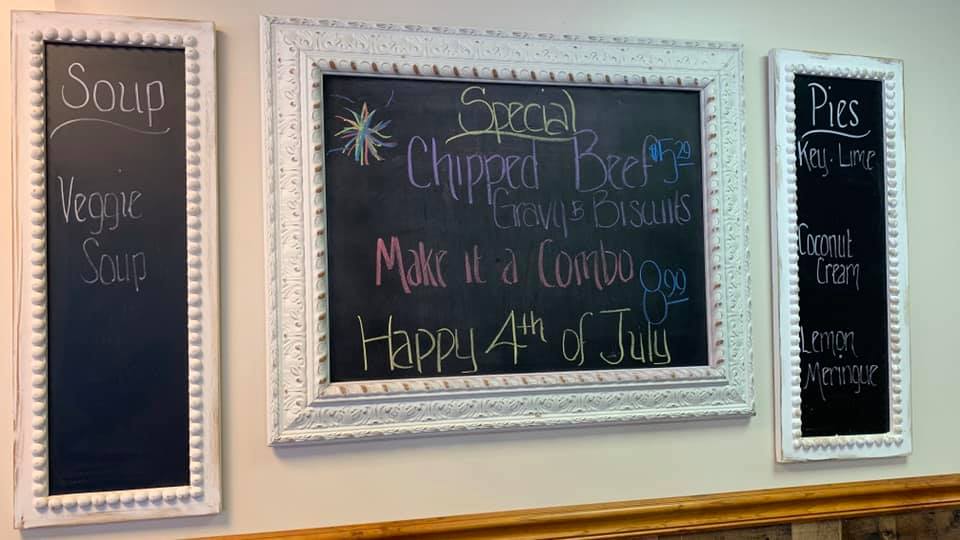 Soup
Veggie
Soup
Special
Chipped Beef $5.29
Gravy & Biscuits
Make it a Combo 8.99
Happy 4th of July
Pies
Key-Lime
Coconut
Cream
Lemon
Meringue